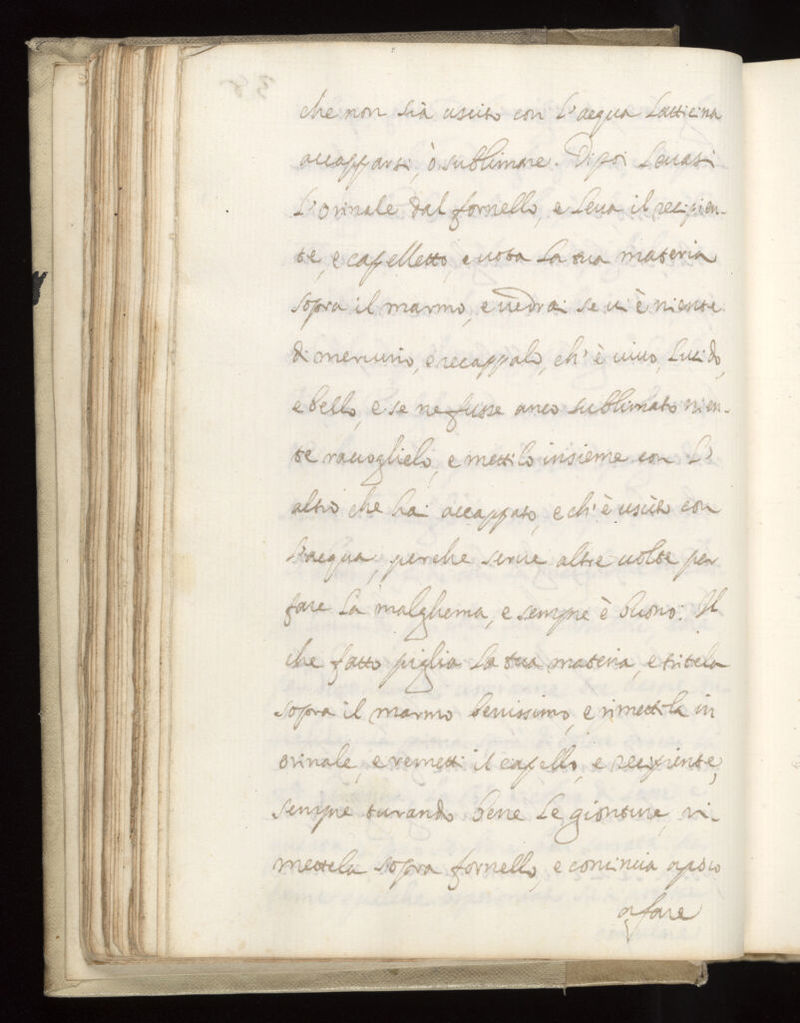 che non sia uscito con l'acqua latticina
accapparsi, ò sublimare. Dipoi levasi
l'orinale dal fornello, e leva il recipien-
te, e capelletto, e vota la tua materia
sopra il marmo, e vedrai se vi è niente
di mercurio, e recappalo, ch'è vivo, lucido,
e bello, e se ne fusse anco sublimato nien-
te raccoglielo, e mettilo insieme con l'
altro che hai accappato, e ch'è uscito con
l'acqua, perche serve altre volte per
fare la malghema, e sempre è buono. Il
che fatto piglia la tua materia, e tritela
sopra il marmo benissimo, e rimettela in
orinale, e remetti il capello, e recipiente,
sempre turando bene le gionture, ri-
mettela sopra fornello, e comincia apoco
a fare